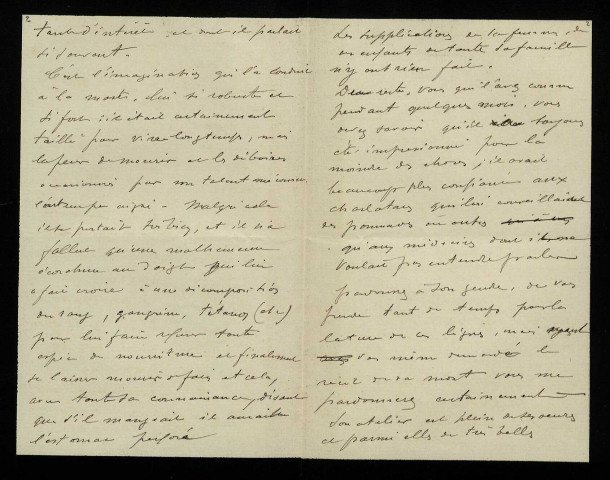 2
tant d'intérêt et dont il parlait
si souvent.
C'est l'imagination qui l'a conduit
à la mort, lui si robuste et
si fort ; il était certainement
taillé pour vivre longtemps, mais
la peur de mourir et les déboires
occasionnés par son talent méconnu
l'ont un peu aigri. Malgré cela
il se portait très bien, et il n'a
fallu qu'une malheureuse
écorchure au doigt qui lui
a fait croire à une décomposition
du sang, gangrène, tétanos (etc)
pour lui faire refuser toute
espèce de nourriture et finalement
se laisser mourir de faim et cela,
avec toute sa connaissance, disant
que s'il mangeait il aurait
l'estomac perforé
3
Les supplications de sa femme, de
ses enfants et toute sa famille
n'y ont rien fait.
Du reste, vous qui l'avez connu
pendant quelques mois, vous
devez savoir qu'il toujours
été impressionné pour la
moindre des choses ; il avait
beaucoup plus confiance aux
charlatans qui lui conseillaient
des pommades ou autres
qu'aux médecins dont il
voulait pas entendre parler
pardonnez à son gendre, de vous
prendre tant de temps par la
lecture de ces lignes, mais
vous même demandé le
récit de sa mort vous me
pardonnerez certainement
Son atelier est plein de ses oeuvres
et parmi elles de très belles